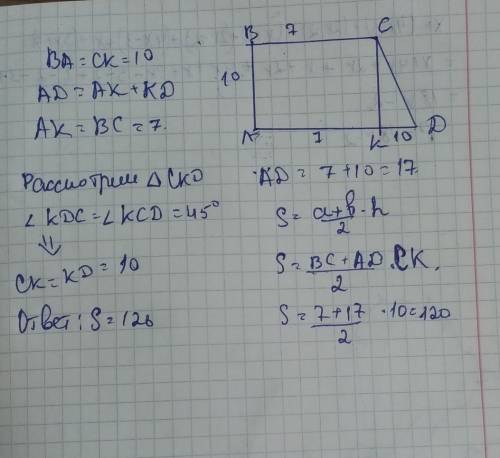 BA = CK = 10
AD = AK + KD
AK = BC = 7.
B 7 C
10
A 7 K 10 D
Рассмотрим △CKD
∠KDC = ∠KCD = 45°
⇓
CK = KD = 10
Ответ: S = 120
AD = 7 + 10 = 17
S = \frac{a+b}{2} · h
S = \frac{BC + AD}{2} · CK.
S = \frac{7 + 17}{2} · 10 = 120